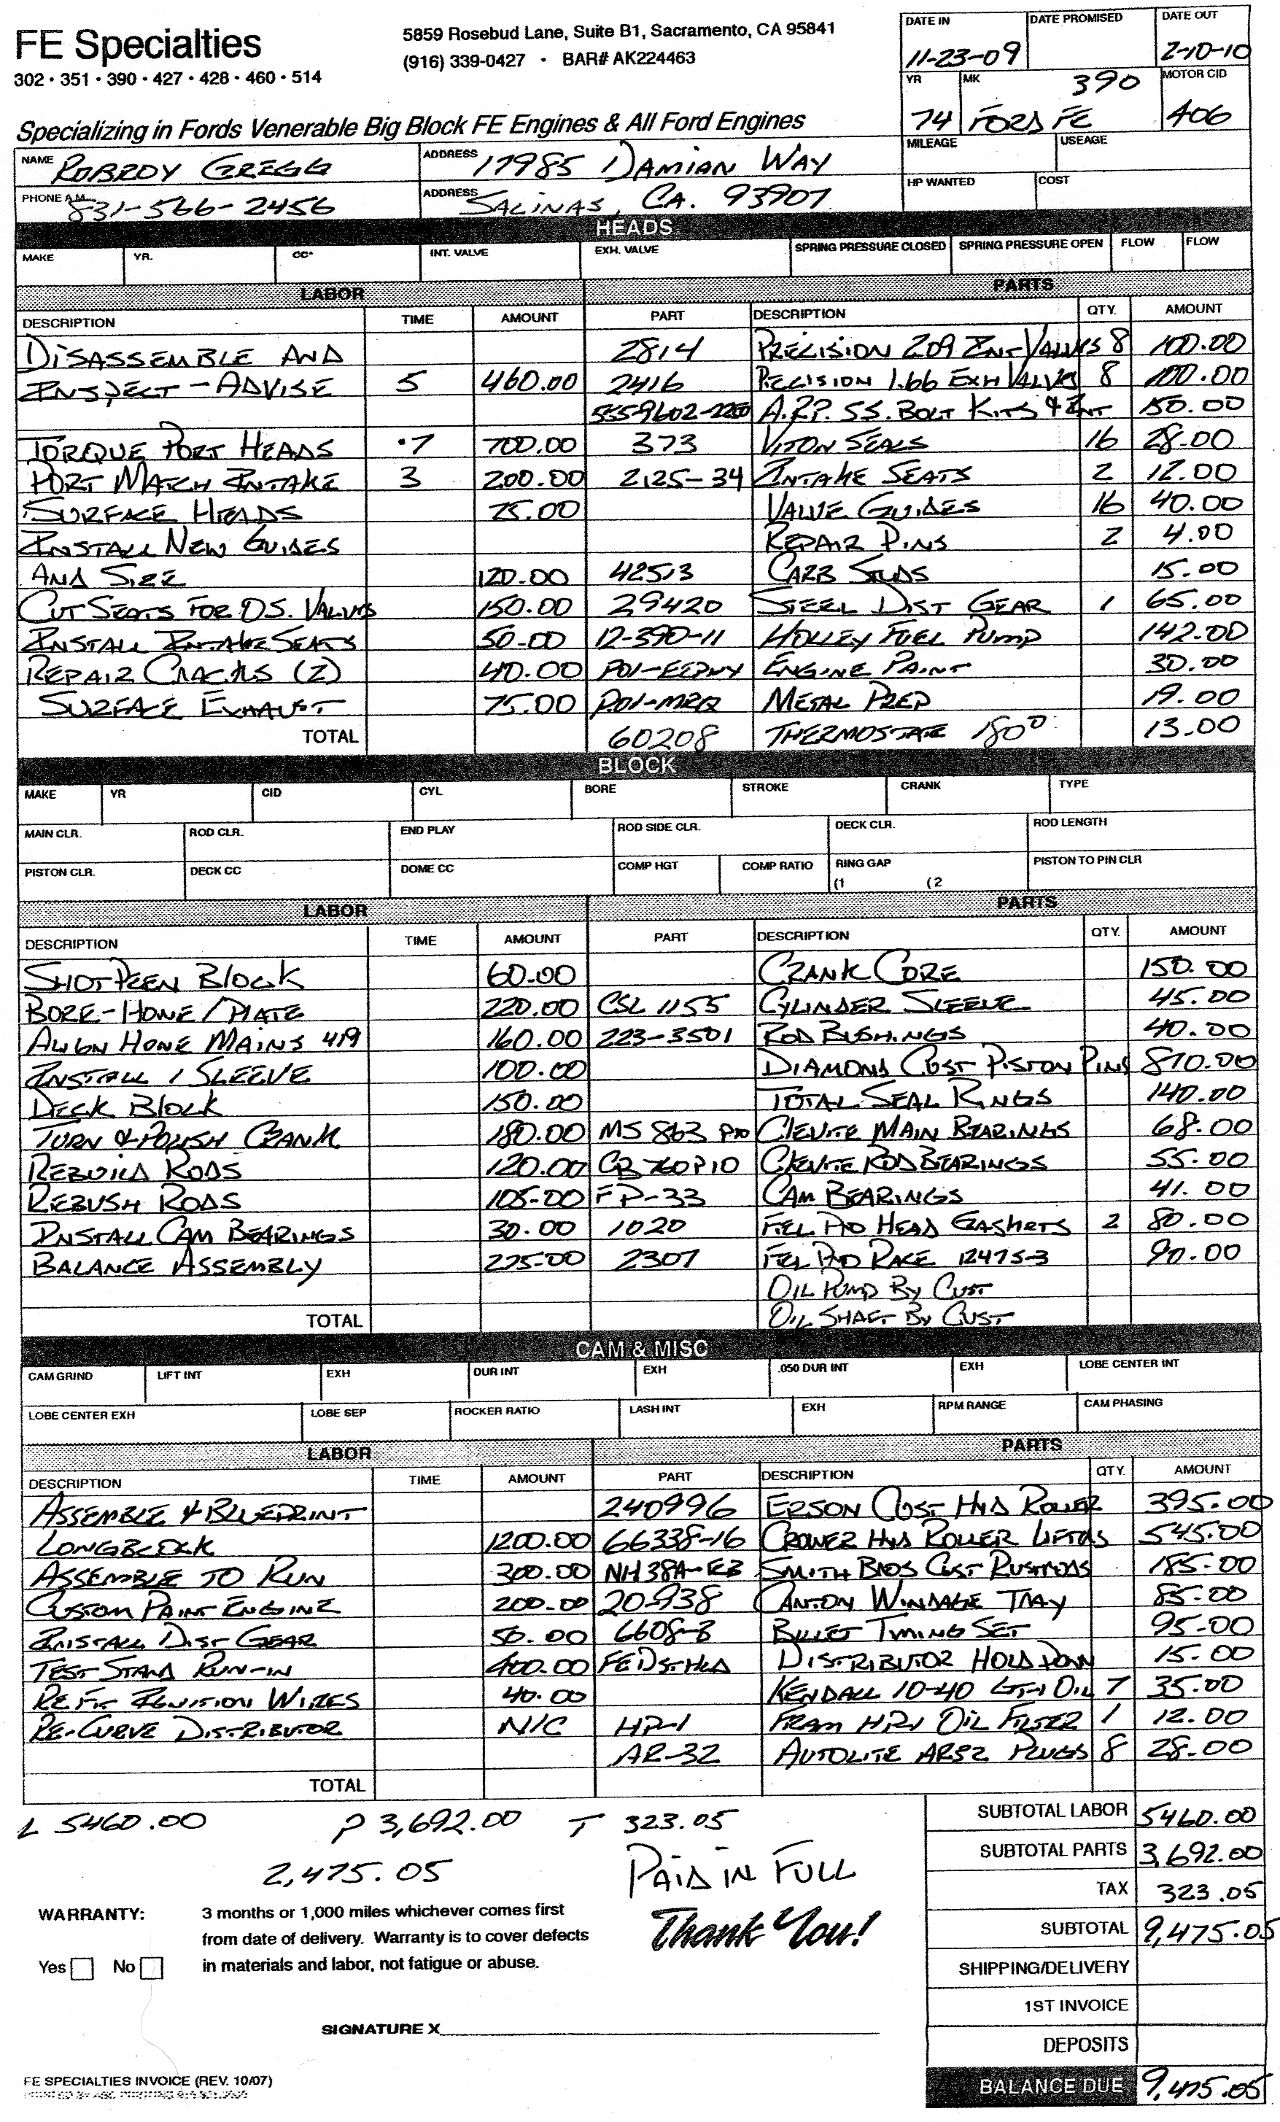 FE Specialties
302 • 351 • 390 • 427 • 428 • 460 • 514
5859 Rosebud Lane, Suite B1, Sacramento, CA 95841
(916) 339-0427 • BAR# AK224463
Specializing in Fords Venerable Big Block FE Engines & All Ford Engines
DATE IN 11-23-09 DATE PROMISED DATE OUT 2-10-10
YR 74 MK 390 FORD FE MOTOR CID 406
MILEAGE USEAGE
HP WANTED COST
NAME ROBROY GREGG ADDRESS 17985 DAMIAN WAY
PHONE A.M. 831-566-2456 ADDRESS SALINAS, CA. 93907
HEADS
MAKE YR. CC* INT. VALVE EXH. VALVE SPRING PRESSURE CLOSED SPRING PRESSURE OPEN FLOW FLOW
LABOR PARTS
DESCRIPTION TIME AMOUNT PART DESCRIPTION QTY. AMOUNT
DISASSEMBLE AND 2814 PRECISION 2.09 INT VALVES 8 100.00
INSPECT - ADVISE 5 460.00 2416 PRECISION 1.66 EXH VALVES 8 100.00
A.R.P. S.S. BOLT KITS & INT 150.00
TORQUE PORT HEADS .7 700.00 373 VITON SEALS 16 28.00
PORT MATCH INTAKE 3 200.00 2125-34 INTAKE SEATS 2 12.00
SURFACE HEADS 75.00 VALVE GUIDES 16 40.00
INSTALL NEW GUIDES REPAIR PINS 2 4.00
AND SIZE 120.00 42513 CARB STUDS 15.00
CUT SEATS FOR O.S. VALVES 150.00 29420 STEEL DIST GEAR 1 65.00
INSTALL INTAKE SEATS 50.00 12-390-11 HOLLEY FUEL PUMP 142.00
REPAIR CRACKS (2) 40.00 ENGINE PAINT 30.00
SURFACE EXHAUST 75.00 P01-MRQ METAL PREP 19.00
TOTAL 60208 THERMOSTATE 180° 13.00
BLOCK
MAKE YR CID CYL BORE STROKE CRANK TYPE
MAIN CLR. ROD CLR. END PLAY ROD SIDE CLR. DECK CLR. ROD LENGTH
PISTON CLR. DECK CC DOME CC COMP HGT COMP RATIO RING GAP (1 (2 PISTON TO PIN CLR
LABOR PARTS
DESCRIPTION TIME AMOUNT PART DESCRIPTION QTY. AMOUNT
SHOTPEEN BLOCK 60.00 CRANK CORE 150.00
BORE-HONE/PLATE 220.00 CSL 1155 CYLINDER SLEEVE 45.00
ALIGN HONE MAINS 419 160.00 223-3501 ROD BUSHINGS 40.00
INSTALL 1 SLEEVE 100.00 DIAMOND CUST PISTON PINS 810.00
DECK BLOCK 150.00 TOTAL SEAL RINGS 140.00
TURN & POLISH CRANK 180.00 MS 863 P10 CLEVITE MAIN BEARINGS 68.00
REBUILD RODS 120.00 CB 760P10 CLEVITE ROD BEARINGS 55.00
REBUSH RODS 105.00 FP-33 CAM BEARINGS 41.00
INSTALL CAM BEARINGS 30.00 1020 FEL PRO HEAD GASKETS 2 80.00
BALANCE ASSEMBLY 225.00 2307 FEL PRO 12475-3 90.00
OIL PUMP BY CUST
TOTAL OIL SHAFT BY CUST
CAM & MISC
CAM GRIND LIFT INT EXH DUR INT EXH .050 DUR INT EXH LOBE CENTER INT
LOBE CENTER EXH LOBE SEP ROCKER RATIO LASH INT EXH RPM RANGE CAM PHASING
LABOR PARTS
DESCRIPTION TIME AMOUNT PART DESCRIPTION QTY. AMOUNT
ASSEMBLE & BLUEPRINT 240996 ERSON CUST HYD ROLLER 395.00
LONGBLOCK 1200.00 66338-16 CROWER HYD ROLLER LIFTERS 545.00
ASSEMBLE TO RUN 300.00 SMITH BROS CUST PUSHRODS 185.00
CUSTOM PAINT ENGINE 200.00 20-938 CANTON WINDAGE TRAY 85.00
INSTALL DIST GEAR 50.00 6608-3 BILLET TIMING SET 95.00
TEST STAND RUN-IN 400.00 FE DST HLD DISTRIBUTOR HOLD DOWN 15.00
RE FIT IGNITION WIRES 40.00 KENDALL 10-40 GT-1 OIL 7 35.00
RE-CURVE DISTRIBUTOR N/C HP-1 FRAM HP-1 OIL FILTER 1 12.00
AR-32 AUTOLITE AR32 PLUGS 8 28.00
TOTAL
L 5460.00 P 3,692.00 T 323.05
2,475.05 PAID IN FULL
SUBTOTAL LABOR 5460.00
SUBTOTAL PARTS 3,692.00
TAX 323.05
SUBTOTAL 9,475.05
SHIPPING/DELIVERY
1ST INVOICE
DEPOSITS
BALANCE DUE 9,475.05
WARRANTY: 3 months or 1,000 miles whichever comes first
from date of delivery. Warranty is to cover defects
Yes No in materials and labor, not fatigue or abuse.
Thank You!
SIGNATURE X
FE SPECIALTIES INVOICE (REV. 10/07)